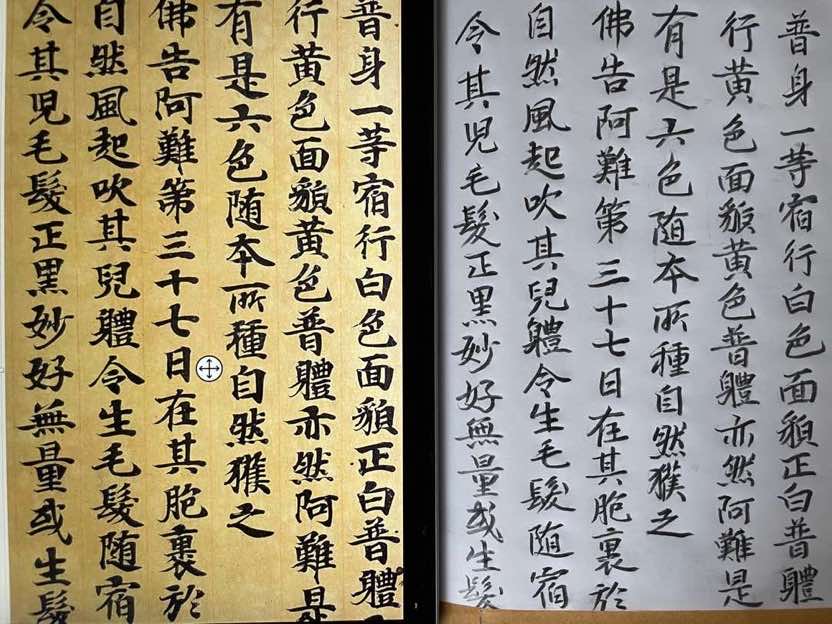 普身一等宿行白色面貌正白普體
行黄色面貌黄色普體亦然阿難是
有是六色随本所種自然獲之
佛告阿難第三十七日在其胞裏於
自然風起吹其兒體令生毛髮随宿
令其児毛髮正黑妙好無量或生髮
普身一等宿行白色面貌正白普體
行黄色面貌黄色普體亦然阿難是
有是六色随本所種自然獲之
佛告阿難第三十七日在其胞裏於
自然風起吹其兒體令生毛髮随宿
令其児毛髮正黑妙好無量或生髮